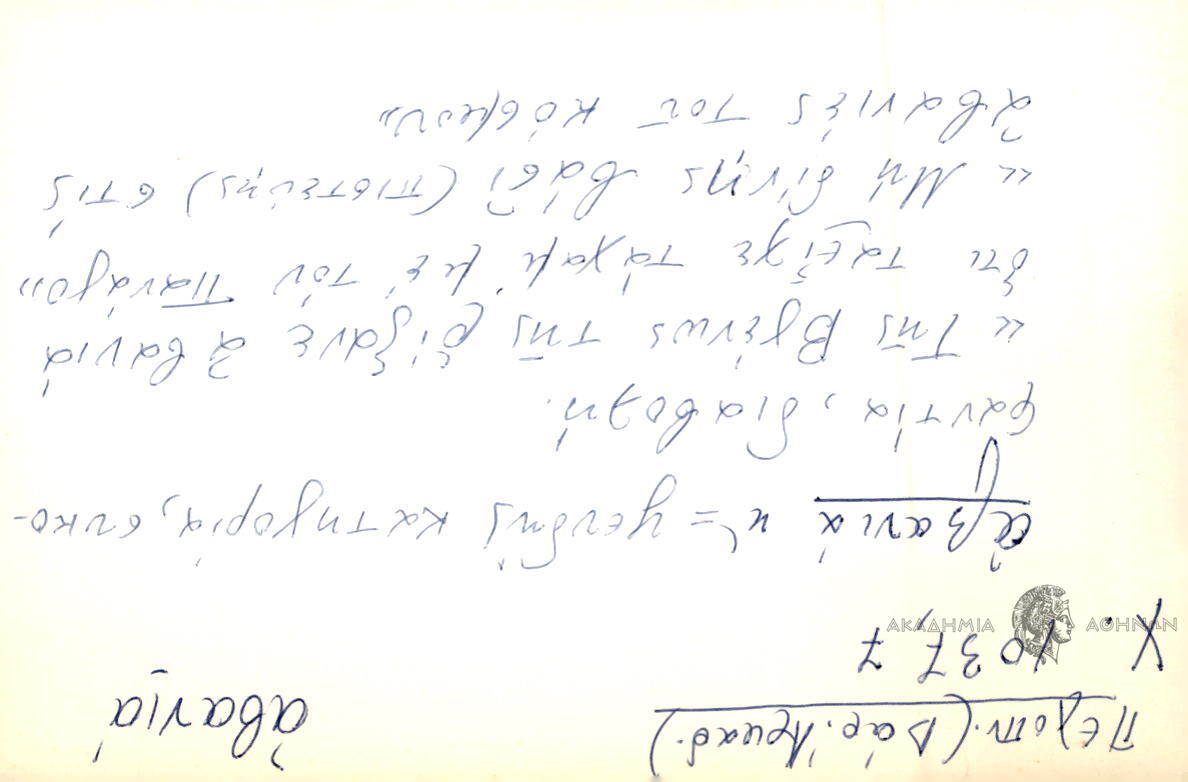 Πελοπ. (Βάρ. Ἀρκαδ.)
ἀβανία
Χ. 1037, 7
ΑΚΑΔΗΜΙΑ ΑΘΗΝΩΝ
ἀβανιά ἡ = ψευδής κατηγορία, συκο-
φαντία, διαβολή.
« Τῆς Βγένως τῆς ρίξανε ἀβανιά
ὅτι τἄειχε τάχαμ' μὲ τὸν Παναγο»
« Μὴ δίνῃς βάση (πιστεύῃς) στὶς
ἀβανιές τοῦ κόσμου»